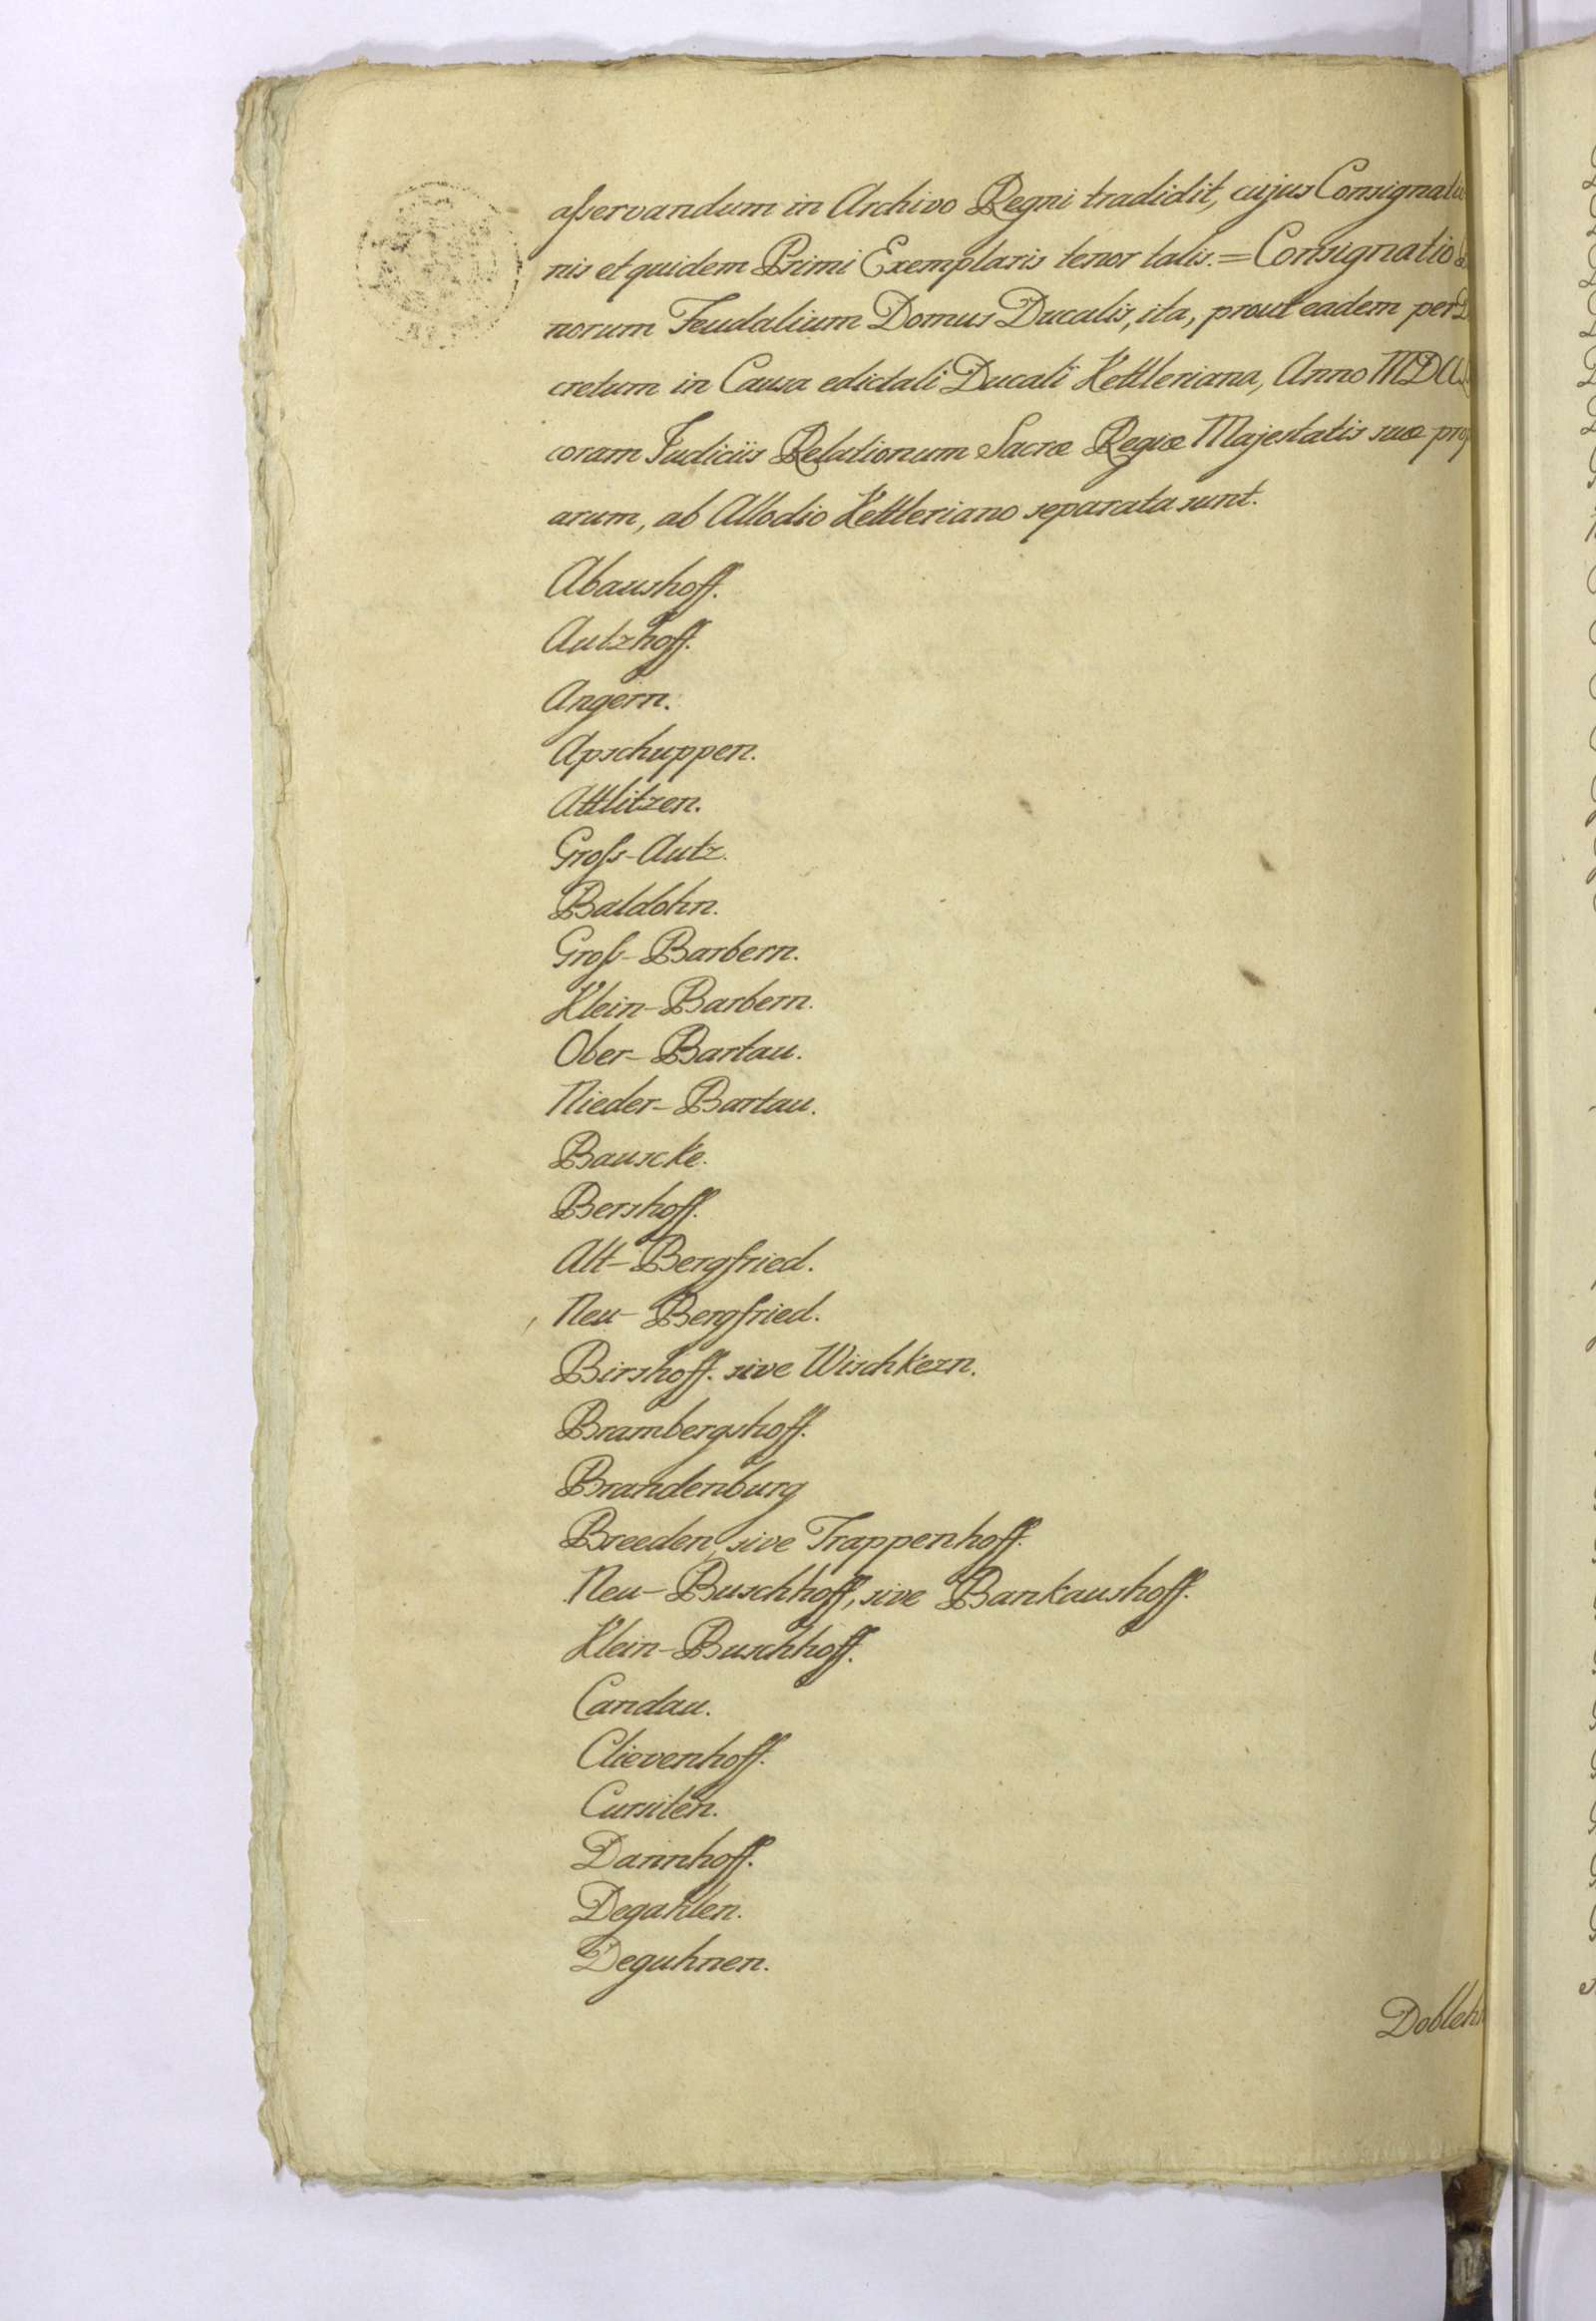 asservandum in Archivo Regni tradidit, cujus Consignatio
nis et quidem Primi Exemplaris tenor talis. = Consignatio
norum Feudalium Domus Ducalis, ita, prout eadem per
cretum in Causa edictali Ducali Kettleriana, Anno
coram Judiciis Relationum Sacræ Regiæ Majestatis suæ
arum, ab Allodio Kettleriano separata sunt.
Abaushoff.
Autzhoff.
Angern.
Apschuppen.
Attlitzen.
Gross-Autz.
Baldohn.
Gross-Barbern.
Klein-Barbern.
Ober-Bartau.
Nieder-Bartau.
Bauscke.
Bershoff.
Alt-Bergfried.
Neu-Bergfried.
Birshoff. sive Wischkezn.
Brambergshoff.
Brandenburg
Breeden, sive Trappenhoff.
Neu-Buschhoff, sive Bankaushoff.
Klein-Buschhoff.
Candau.
Clievenhoff.
Cursiten.
Dannhoff.
Degahlen.
Deguhnen.